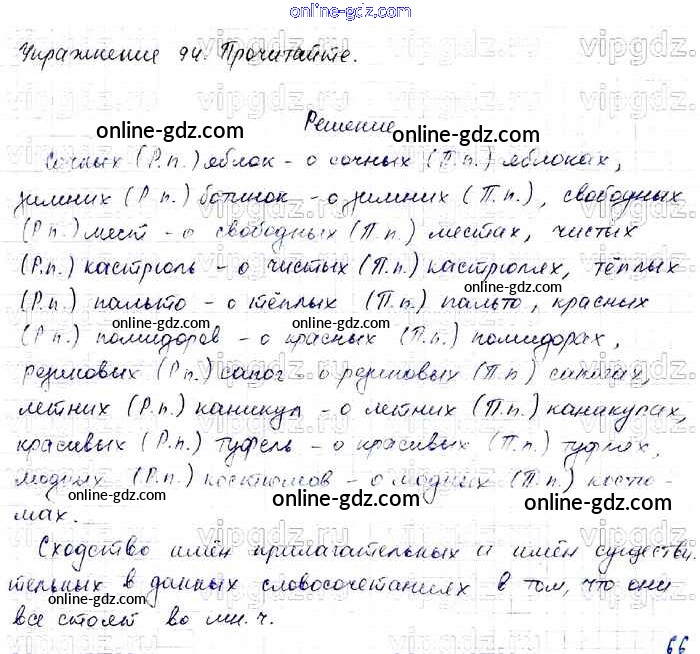 online-gdz.com
Упражнение 94. Прочитайте.
Решение
Сочных (Р.п.) яблок - о сочных (П.п.) яблоках,
зимних (Р.п.) ботинок - о зимних (П.п.), свободных
(Р.п.) мест - о свободных (П.п.) местах, чистых
(Р.п.) кастрюль - о чистых (П.п.) кастрюлях, тёплых
(Р.п.) пальто - о тёплых (П.п.) пальто, красных
(Р.п.) помидоров - о красных (П.п.) помидорах,
резиновых (Р.п.) сапог - о резиновых (П.п) сапогах,
летних (Р.п.) каникул - о летних (П.п.) каникулах,
красивых (Р.п.) туфель - о красивых (П.п.) туфлях,
модных (Р.п.) костюмов - о модных (П.п.) костю-
мах.
Сходство имён прилагательных и имён существи-
тельных в данных словосочетаниях в том, что они
все стоят во мн. ч.
66